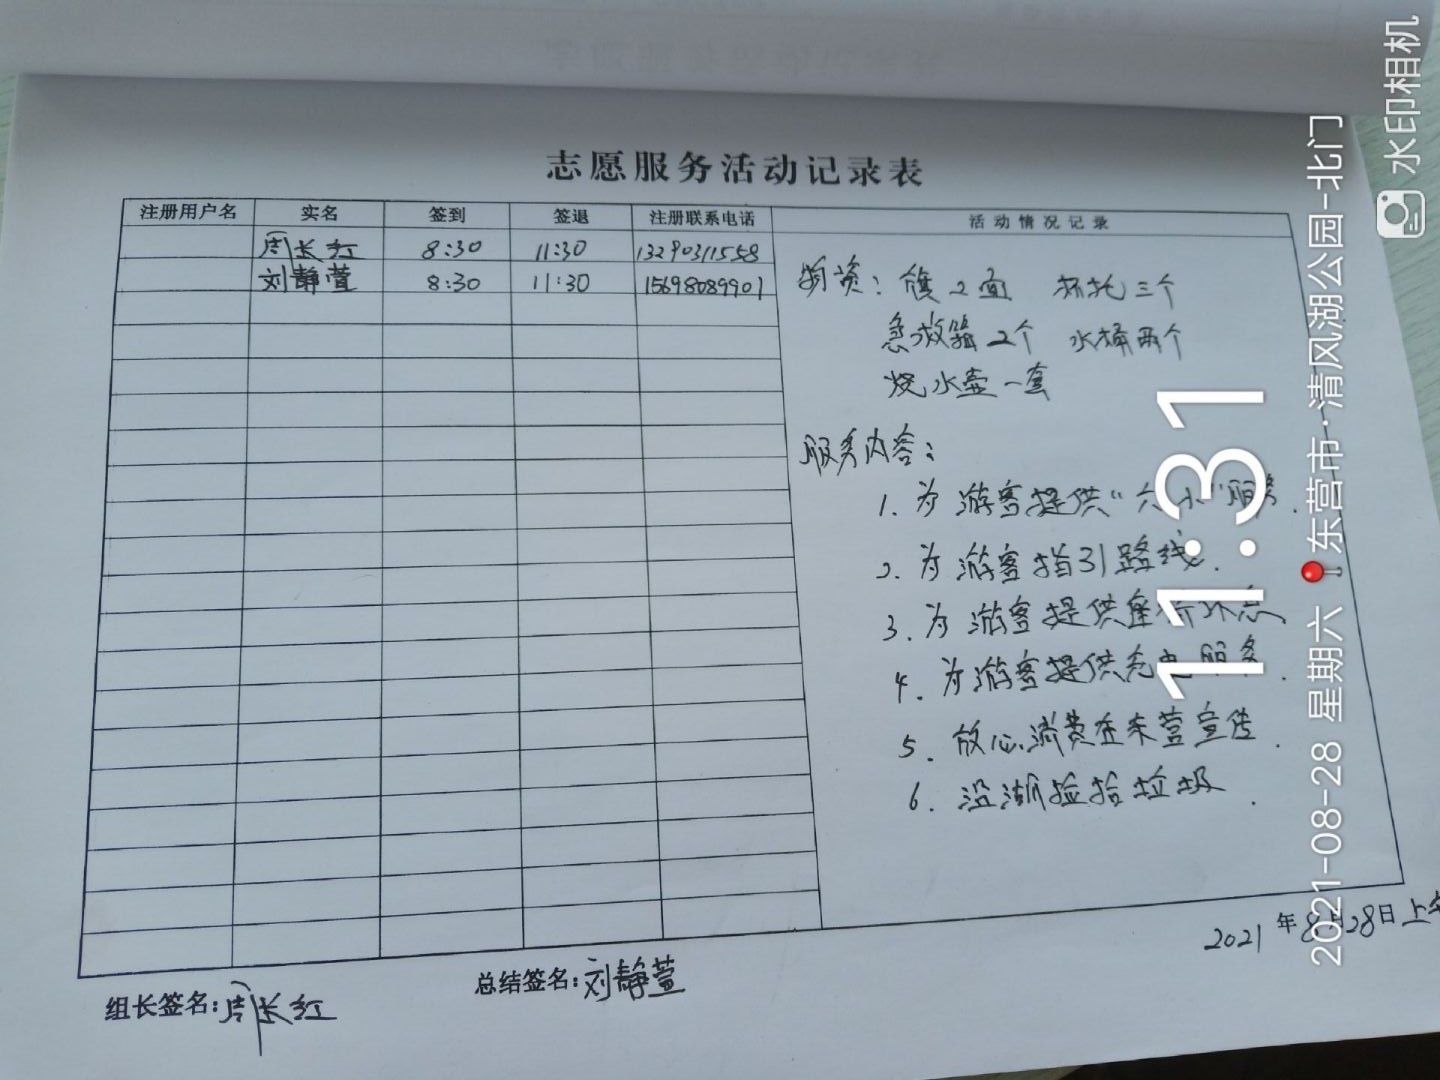 志愿服务活动记录表
注册用户名 实名 签到 签退 注册联系电话 活动情况记录
周长红 8:30 11:30 13290311558
刘静萱 8:30 11:30 15698089901
物资：旗2面 杯托三个
急救箱2个 水桶两个
烧水壶一套
服务内容：
1. 为游客提供“六小”服务.
2. 为游客指引路线.
3. 为游客提供
4. 为游客提供充电服务.
5. 放心消费在东营宣传.
6. 沿湖捡拾垃圾.
2021年8月28日上午
组长签名：周长红
总结签名：刘静萱
11:31
2021-08-28 星期六 东营市·清风湖公园-北门
水印相机